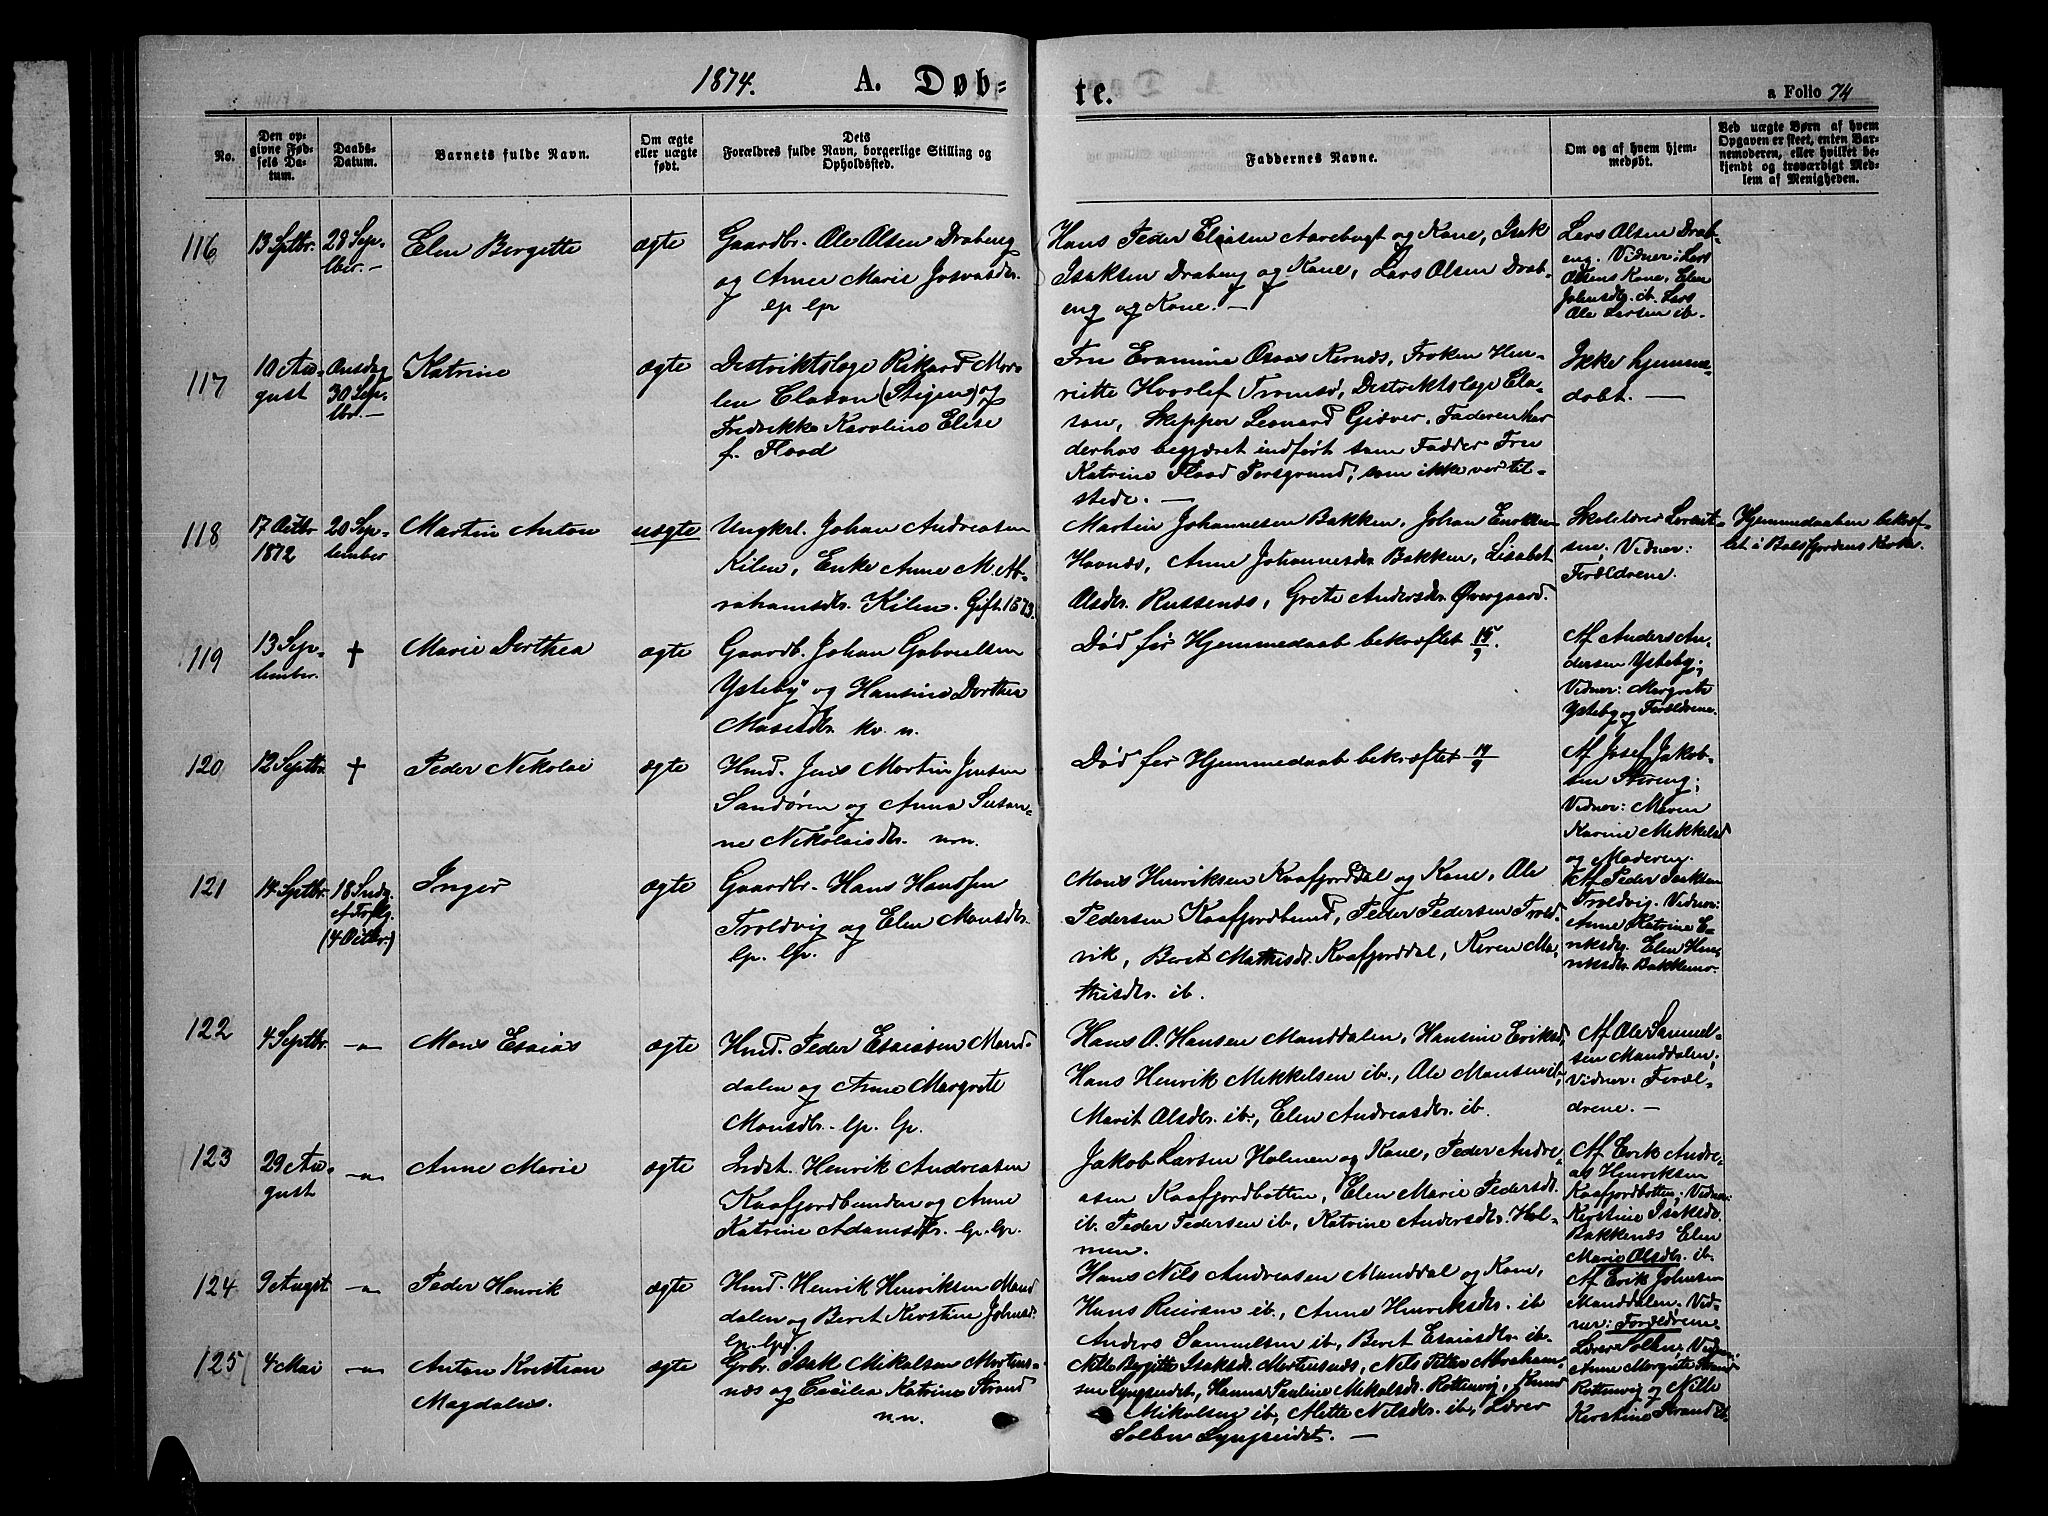 1874.
A. Døb-
te.
a Folio 74
No.
Den op-
givne Fød-
sels Da-
tum.
Daabs-
Datum.
Barnets fulde Navn.
Om ægte
eller uægte
født.
Dets
Forældres fulde Navn, borgerlige Stilling og
Opholdssted.
Faddernes Navne.
Om og af hvem hjem-
medøbt.
Ved uægte Børn af hvem
Opgaven er skeet, enten Bar-
nemoderen, eller hvilket be-
kjendt og troværdigt Med-
lem af Menigheden.
116
13 Septbr.
28 Sep-
tber. —
Elen Bergitte
ægte
Gaardbr. Ole Olsen Drabeng
og Anne Marie Josvasdr.
lp lp
Hans Peder Eliasen Aarebugt og Kone, Isak
Isaksen Drabeng og Kone, Lars Olsen Drab-
eng og Kone. —
Lars Olsen Drab-
eng. Vidner: Lars
Olsens Kone, Elen
Johnsdr. ib. Lars
Ole Larsen ib.
117
10 Au-
gust
Onsdag
30 Sep-
tbr. —
Katrine
ægte
Distriktslæge Rikard Mor-
ten Clason (Stigen) og
Fredrikke Karoline Elise
f. Flood
Fru Evamine Kernes, Frøken Hen-
riette Hovslef Tromsø, Distriktslæge Cla-
son, Skipper Leonard Gjæver. Faderen har
derhos begjæret indført som Fadder Fru
Katrine Flood Porsgrund, som ikke var til-
stede. —
Ikke hjemme-
døbt. —
118
17 Octbr
1872
20 Sep-
tember
Martin Anton
uægte
Ungkrl. Johan Andreasen
Kilen, Enke Anne M. Ab-
rahamsdr. Kilen. Gift 1873.
Martin Johannesen Bakken, Johan
Havnæs, Anne Johannesdr Bakken, Lisabet
Olsdr. Russenes, Grete Andersdr. Øvergaard.
Skolelærer Lorent-
sen; Vidner:
Forældrene.
Hjemmedaaben bekræf-
tet i Balsfjordens Kirke.
119
13 Sep-
tember.
†
Marie Dorthea
ægte
Gaardb. Johan Gabrielsen
Ysteby og Hansine Dorthea
Mosesdr. kv. n.
Død før Hjemmedaab bekræftet 15/9.
Af Anders An-
dersen Ysteby;
Vidner: Margrete
Ysteby og Forældrene.
120
12 Septbr.
†
Peder Nikolai
ægte
Hmd. Jens Martin Jensen
Sandøren og Anna Susan-
ne Nikolaisdr. nrn.
Død før Hjemmedaab bekræftet 19/9
Af Josef Jakob-
sen Steeng;
Vidner: Maren
Karine Mikkelsd
og Moderen.
121
14 Septbr.
18 Sndg.
ef Trftg.
(4 Octbr.)
Inger
ægte
Gaardbr. Hans Hansen
Troldvig og Elen Monsdr.
lp. lp.
Mons Henriksen Kaafjorddal og Kone, Ole
Pedersen Kaafjordbund, Peder Pedersen Trold-
vik, Beret Mathisdr. Kaafjorddal, Karen Ma-
thisdr. ib.
Af Peder Isaksen
Troldvig. Vidner:
Anne Katrine E-
riksdr. Elen Hen-
riksdr. Bakkemo.
122
4 Septbr.
-"-
Mons Esaias
ægte
Hmd. Peder Esaiasen Mand-
dalen og Anne Margrete
Monsdr. lp. lp.
Hans O. Hansen Manddalen, Hansine Eriksd,
Hans Henrik Mikkelsen ib., Ole Monsen ib,
Marit Olsdr. ib., Elen Andreasdr. ib.
Af Ole Samuel-
sen Manddalen;
Vidner: Foræl-
drene. —
123
29 Au-
gust
-"-
Anne Marie
ægte
Indst. Henrik Andreasen
Kaafjordbunden og Anne
Katrine Adamsdtr. lp. lp.
Jakob Larsen Holmen og Kone, Peder Andre-
asen Kaafjordbotten, Elen Marie Pedersdr.
ib. Peder Pedersen ib., Katrine Andersdr. Hol-
men.
Af Erik Andre-
as Henriksen
Kaafjordbotten; Vidner:
Kerstine Isaksdr.
Bakkenes Elen
Marie Olsdr. ib.
124
9 Augst
-"-
Peder Henrik
ægte
Hmd. Henrik Henriksen Mand
dalen og Beret Kerstine Johnsd.
lp. lp.
Hans Nils Andreasen Manddal og Kone,
Hans Reiersen ib., Anne Henriksdr. ib
Anders Samuelsen ib., Beret Esaiasdr. ib.
Af Erik Johnsen
Manddalen; Vid-
ner: Forældrene.
125
4 Mai
-"-
Anton Kristian
Magdalus.
ægte
Grbr. Isak Mikalsen Mortens-
næs og Cecilia Katrine Strand
n.n.
Nille Birgitte Isaksd. Mortensnes, Nils Peter Abraham-
sen Lyngseidet, Hanna Pauline Mikalsdr. Rottenvig, Knud
Mikalsen ib, Mette Nilsdr. ib., Lærer
Solbu Lyngseidet. —
Lærer Solbu, Vidner:
Anne Margrete Strand
Rottenvig og Nille
Kerstine Strand ib.